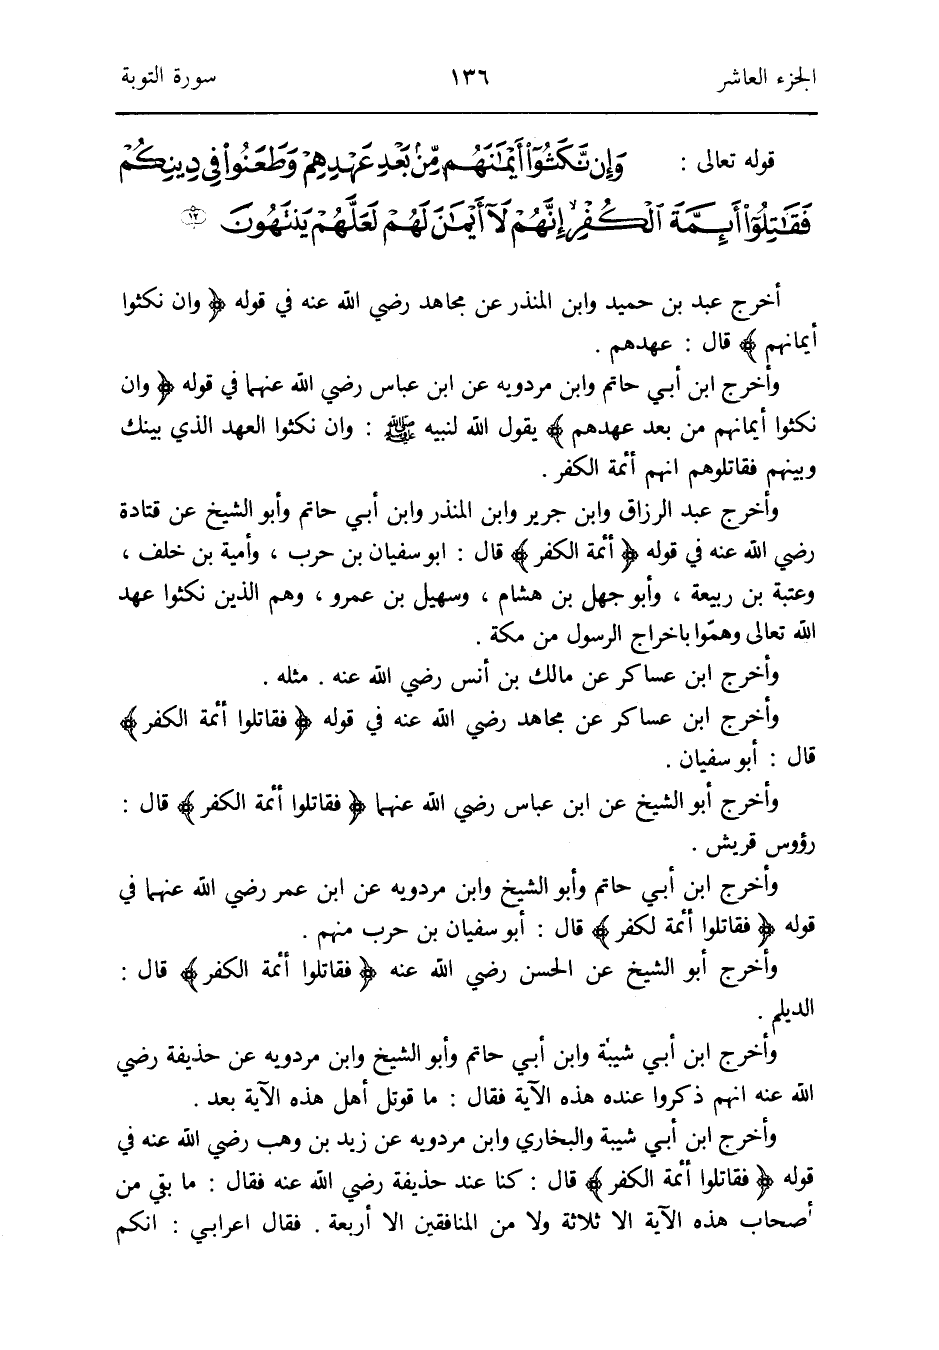 الجزء العاشر ١٣٦ سورة التوبة
قوله تعالى : وَإِن نَّكَثُوٓا۟ أَيْمَٰنَهُم مِّنۢ بَعْدِ عَهْدِهِمْ وَطَعَنُوا۟ فِى دِينِكُمْ
فَقَٰتِلُوٓا۟ أَئِمَّةَ ٱلْكُفْرِ ۙ إِنَّهُمْ لَآ أَيْمَٰنَ لَهُمْ لَعَلَّهُمْ يَنتَهُونَ ١٢
أخرج عبد بن حميد وابن المنذر عن مجاهد رضي الله عنه في قوله ﴿ وان نكثوا
أيمانهم ﴾ قال : عهدهم .
وأخرج ابن أبي حاتم وابن مردويه عن ابن عباس رضي الله عنهما في قوله ﴿ وان
نكثوا أيمانهم من بعد عهدهم ﴾ يقول الله لنبيه ﷺ : وان نكثوا العهد الذي بينك
وبينهم فقاتلوهم انهم أئمة الكفر .
وأخرج عبد الرزاق وابن جرير وابن المنذر وابن أبي حاتم وأبو الشيخ عن قتادة
رضي الله عنه في قوله ﴿ أئمة الكفر ﴾ قال : ابو سفيان بن حرب ، وأمية بن خلف ،
وعتبة بن ربيعة ، وأبو جهل بن هشام ، وسهيل بن عمرو ، وهم الذين نكثوا عهد
الله تعالى وهمّوا باخراج الرسول من مكة .
وأخرج ابن عساكر عن مالك بن أنس رضي الله عنه . مثله .
وأخرج ابن عساكر عن مجاهد رضي الله عنه في قوله ﴿ فقاتلوا أئمة الكفر ﴾
قال : أبو سفيان .
وأخرج أبو الشيخ عن ابن عباس رضي الله عنهما ﴿ فقاتلوا أئمة الكفر ﴾ قال :
رؤوس قريش .
وأخرج ابن أبي حاتم وأبو الشيخ وابن مردويه عن ابن عمر رضي الله عنهما في
قوله ﴿ فقاتلوا أئمة لكفر ﴾ قال : أبو سفيان بن حرب منهم .
وأخرج أبو الشيخ عن الحسن رضي الله عنه ﴿ فقاتلوا أئمة الكفر ﴾ قال :
الديلم .
وأخرج ابن أبي شيبة وابن أبي حاتم وأبو الشيخ وابن مردويه عن حذيفة رضي
الله عنه انهم ذكروا عنده هذه الآية فقال : ما قوتل أهل هذه الآية بعد .
وأخرج ابن أبي شيبة والبخاري وابن مردويه عن زيد بن وهب رضي الله عنه في
قوله ﴿ فقاتلوا أئمة الكفر ﴾ قال : كنا عند حذيفة رضي الله عنه فقال : ما بقي من
أصحاب هذه الآية الا ثلاثة ولا من المنافقين الا أربعة . فقال اعرابي : انكم